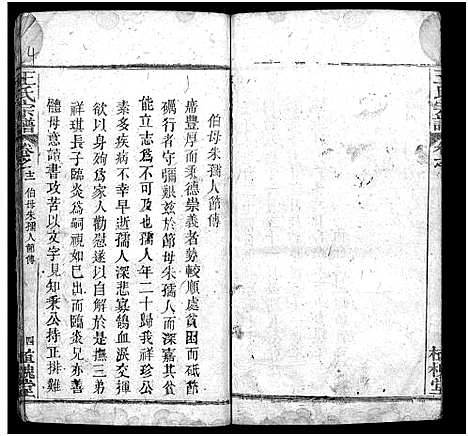 伯母朱孺人節傳
席豐厚而秉德崇義者勢較順處貧困而砥節
礪行者守彌艱茲於節母朱孺人而深嘉其貧
能立志為不可及也孺人年二十歸我祥珍公
素多疾病不幸早逝孺人深悲寡鵠血淚交揮
欲以身殉為家人勸慰遂以自解於是撫三弟
祥琪長子臨炎為嗣視如己出而臨炎兄亦善
體母意讀書攻苦以文字見知乘公持正排難
王氏宗譜
卷之十三
伯母朱孺人節傳
四
植槐堂
王氏宗譜
卷之
植槐堂